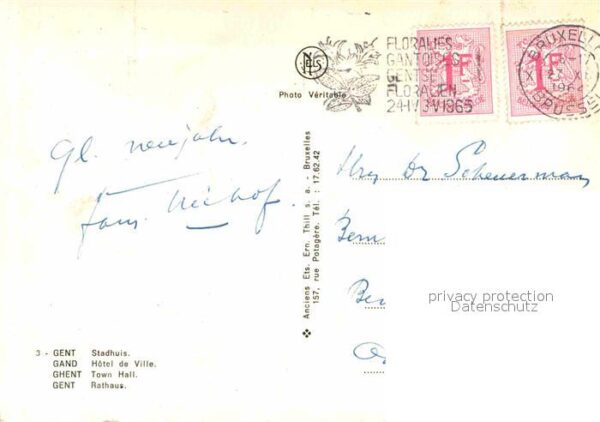 NELS
Photo Véritable
FLORALIES
GANTOISES
GENTSE
FLORALIEN
24-IV 3-V 1965
1F
1F
BRUXELLES
1964
BRUSSEL
Gl. neujahr.
Fam.
Anciens Ets. Ern. Thill s. a. - Bruxelles
157, rue Potagère. Tél. : 17.62.42
Dr Scheuerman
Bern
privacy protection
Datenschutz
3 - GENT Stadhuis.
GAND Hôtel de Ville.
GHENT Town Hall.
GENT Rathaus.